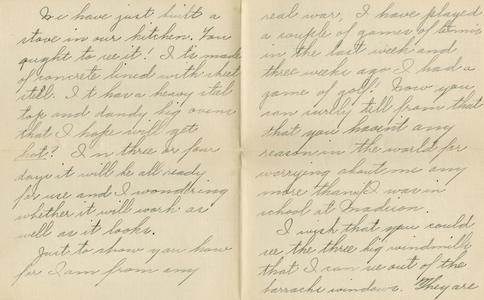 We have just built a
stove in our kitchen. You
ought to see it! It's made
of concrete lined with sheet
still. It has a heavy stal
top and dandy big ovens
that I hope will get
hot? In three or four
days it will be all ready
for use and I wondring
whether it will work as
well as it looks.
Just to show you how
far I am from any
real war, I have played
a couple of games of tennis
in the last week and
three weeks ago I had a
game of golf! Now you
can surely tell from that
that you havent any
reason in the world for
worrying about me any
more than if I was in
school at Madison.
I wish that you could
see the three big windmills
that I can see out of the
barracks windows. They are